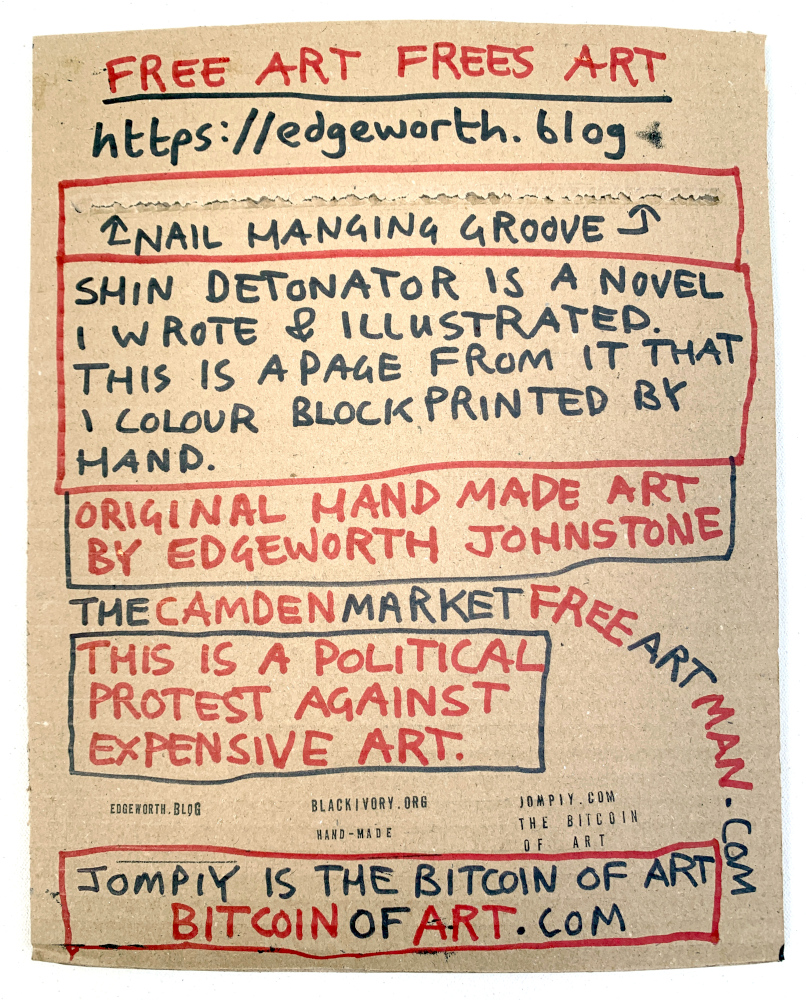 FREE ART FREES ART
https://edgeworth.blog
↑NAIL MANGING GROOVE↑
SHIN DETONATOR IS A NOVEL
I WROTE & ILLUSTRATED.
THIS IS A PAGE FROM IT THAT
I COLOUR BLOCK PRINTED BY
HAND.
ORIGINAL HAND MADE ART
BY EDGEWORTH JOHNSTONE
THECAMDENMARKETFREEARTMAN.COM
THIS IS A POLITICAL
PROTEST AGAINST
EXPENSIVE ART.
EDGEWORTH.BLOG
BLACKIVORY.ORG
HAND-MADE
JOMPIY.COM
THE BITCOIN
OF ART
JOMPIY IS THE BITCOIN OF ART
BITCOINOFART.COM